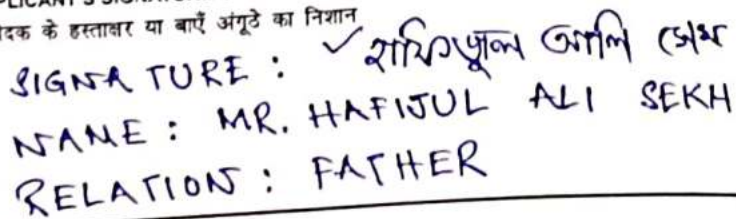 आवेदक के हस्ताक्षर या बाएँ अंगूठे का निशान
SIGNATURE : ✓ হাফিজুল আলি সেখ
NAME : MR. HAFIJUL ALI SEKH
RELATION : FATHER